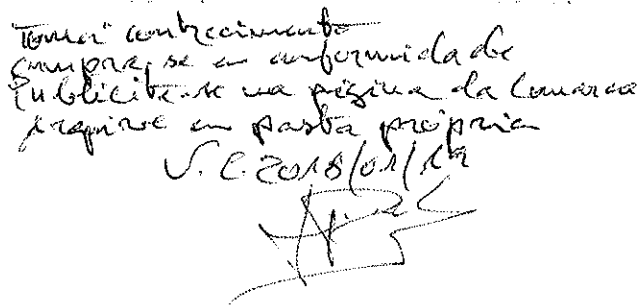 Tomei conhecimento
Cumpra-se em conformidade
Publicite-se na página da Comarca
Arquive em pasta própria
V. C. 2018/01/19